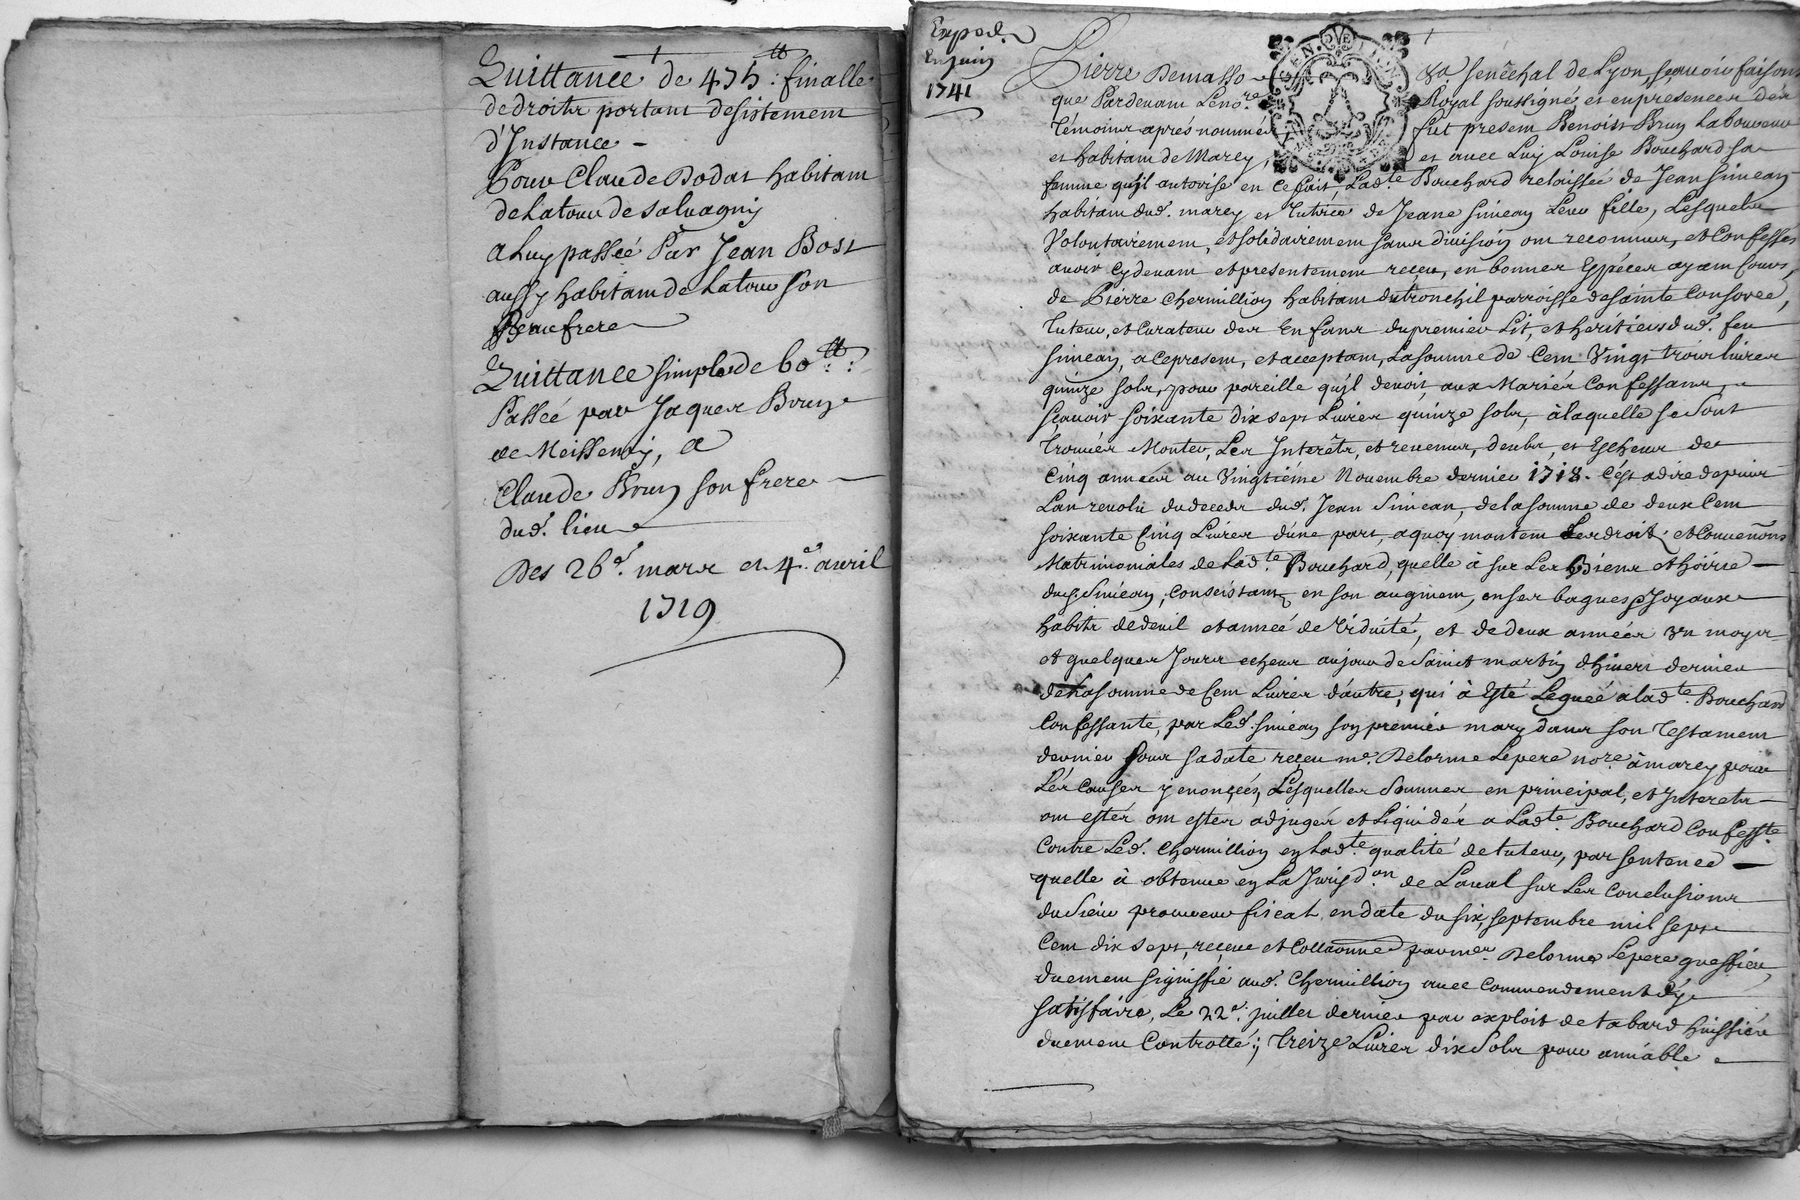 Quittance de 475 ₶: finalle
de droits portant desistement
d'Instance -
Pour Claude Dodat habitant
de Latour de salvagny
a Luy passée Par Jean Bost
aussy habitant de Latour son
Beaufrere
Quittance simple de 60 ₶:
Passée par Jaques Brun
de Meissemy, a
Claude Brun son frere
dud. lieu
Des 26e. mars et 4e. avril
1719
Exped.
En juin
1741
Pierre Demasso
sa Senechal de Lyon, scavoir faisons
que Pardevant Le nore. Royal soussigné, et en presence des
témoins aprés nommés, fut present Benoist Brun Laboureur
et habitant de Marcy, et avec Luy Louise Bouchard sa
femme qu'il autorise en ce fait, Ladte. Bouchard relaissée de Jean Simean
habitant dud. marcy et Tutrice de Jeane Simean Leur fille, Lesquels
Volontairement, et solidairement sans division ont reconnus, et Confessés
avoir cydevant et presentement reçus, en bonnes Espéces ayant Cours,
de Pierre Chermillion habitant du tronchil parroisse de sainte Consorce,
Tuteur, et Curateur des Enfans du premier Lit, et héritiers dud. feu
Simean, a ce present, et acceptant, La somme de Cent Vingt trois livres
quinze sols, pour pareille qu'il devoit aux Mariés Confessans,
sçavoir soixante dix sept Livres quinze sols, à laquelle se sont
trouvés Monter, Les Interêts, et revenus, deubs, et Escheus de
Cinq années au Vingtiéme Novembre dernier 1718. C'est a dire depuis
L'an revolu du deceds dud. Jean Simean, de la somme de deux Cent
soixante Cinq Livres d'une part, a quoy montent Les droits et Convenõns
Matrimoniales de Ladte. Bouchard, quelle à sur Les Biens et hoirie
dud. Simean, Consistant en son augment, en ses bagues & Joyaux
habits de deuil et année de Viduité, et de deux années un moys
et quelques Jours echeus au jour de Saint martin d'hiver dernier
de La somme de Cent Livres d'autre, qui à Esté Leguée a ladte. Bouchard
Confessante, par Led. Simean son premier mary dans son Testament
dernier sous sa date reçeu me. Delorme Le pere nore. à marcy pour
Les Causes y enonçées, Lesquelles sommes en principal, et Interets
ont estés ont estés adjugés et Liquidés a Ladte. Bouchard Confesste
Contre Led. Chermillion en Ladte. qualité de tuteur, par sentence
quelle à obtenue en La Jurisdon. de Laval sur Les Conclusions
du Sieur procureur fiscal, en date du six septembre mil sept
Cent dix sept, reçue et Collationnée par me. Delorme Le pere greffier
duement signiffié aud. Chermillion avec Commendement d'y
satisfaire, Le 22e. juillet dernier par exploit de tabard huissier
duement Controllé; Treize Livres dix sols pour amiable